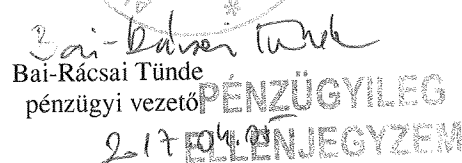 Bai-Rácsai Tünde
Bai-Rácsai Tünde
pénzügyi vezető
PÉNZÜGYILEG
ELLENJEGYZEM